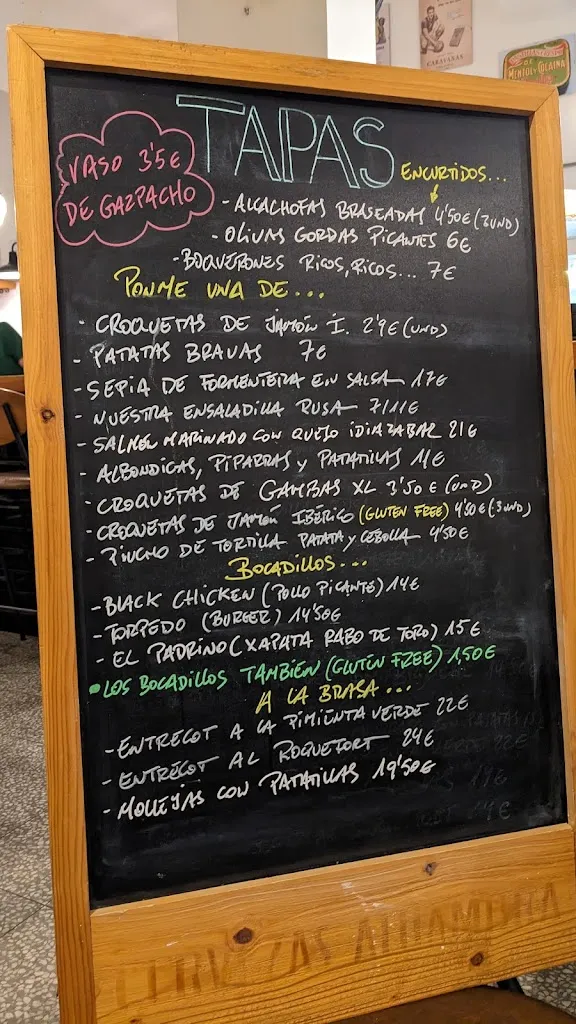 CARAVANAS
MENTOL Y COCAINA
TAPAS
VASO 3'5€
DE GAZPACHO
ENCURTIDOS...
- ALCACHOFAS BRASEADAS 4'50€ (3UND)
- OLIVAS GORDAS PICANTES 6€
- BOQUERONES RICOS, RICOS... 7€
PONME UNA DE...
- CROQUETAS DE JAMÓN I. 2'9€ (UND)
- PATATAS BRAVAS 7€
- SEPIA DE FORMENTERA EN SALSA 17€
- NUESTRA ENSALADILLA RUSA 7/11€
- SALMÓN MARINADO CON QUEJO IDIAZABAL 21€
- ALBONDIGAS, PIPARRAS Y PATATILLAS 11€
- CROQUETAS DE GAMBAS XL 3'50€ (UND)
- CROQUETAS DE JAMÓN IBÉRICO (GLUTEN FREE) 4'80€ (3UND)
- PINCHO DE TORTILLA PATATA Y CEBOLLA 4'50€
BOCADILLOS...
- BLACK CHICKEN (POLLO PICANTE) 14€
- TORPEDO (BURGER) 14'50€
- EL PADRINO (XAPATA RABO DE TORO) 15€
• LOS BOCADILLOS TAMBIÉN (GLUTEN FREE) 1,50€
A LA BRASA...
- ENTRECOT A LA PIMIENTA VERDE 22€
- ENTRECOT AL ROQUEFORT 24€
- MOLLEJAS CON PATATILLAS 19'50€
CERVEZAS ALHAMBRA